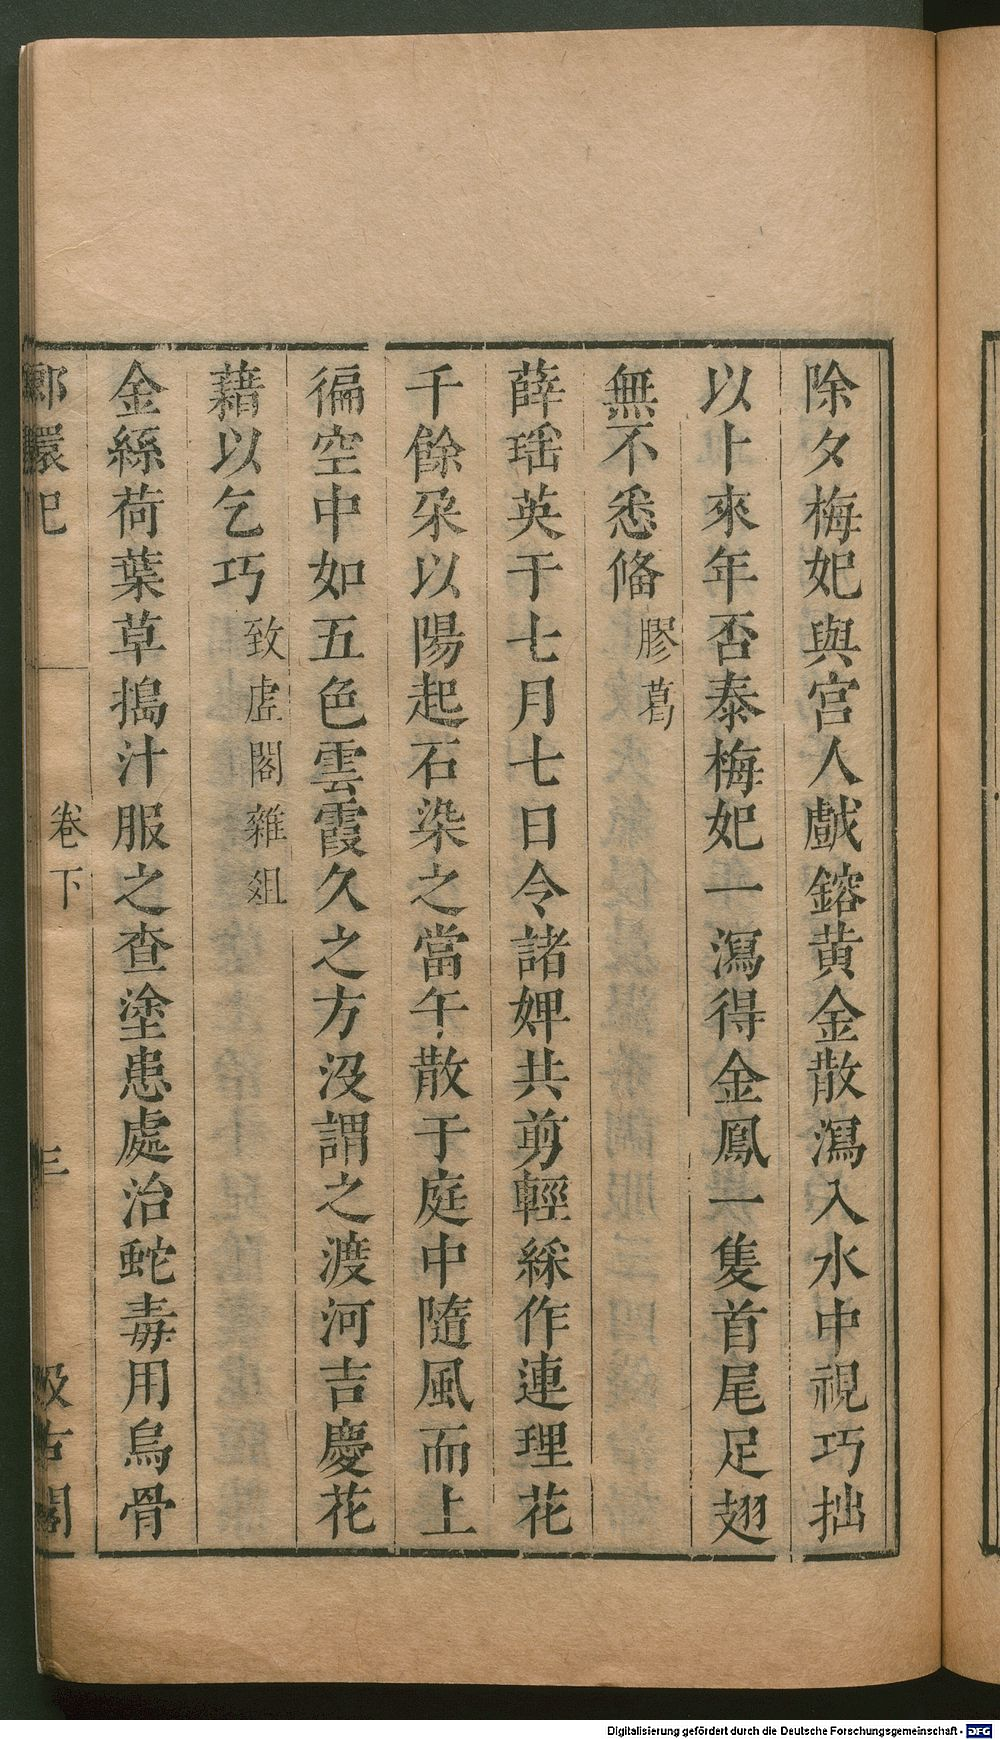 除夕梅妃與宮人戲鎔黃金散瀉入水中視巧拙
以卜來年否泰梅妃一瀉得金鳳一隻首尾足翅
無不悉俻膠葛
薛瑶英于七月七日令諸婢共剪輕綵作連理花
千餘朶以陽起石染之當午散于庭中隨風而上
徧空中如五色雲霞久之方沒謂之渡河吉慶花
藉以乞巧致虛閣雜俎
金絲荷葉草搗汁服之查塗患處治蛇毒用烏骨
郎環記 卷下 三 汲古閣
Digitalisierung gefördert durch die Deutsche Forschungsgemeinschaft - DFG